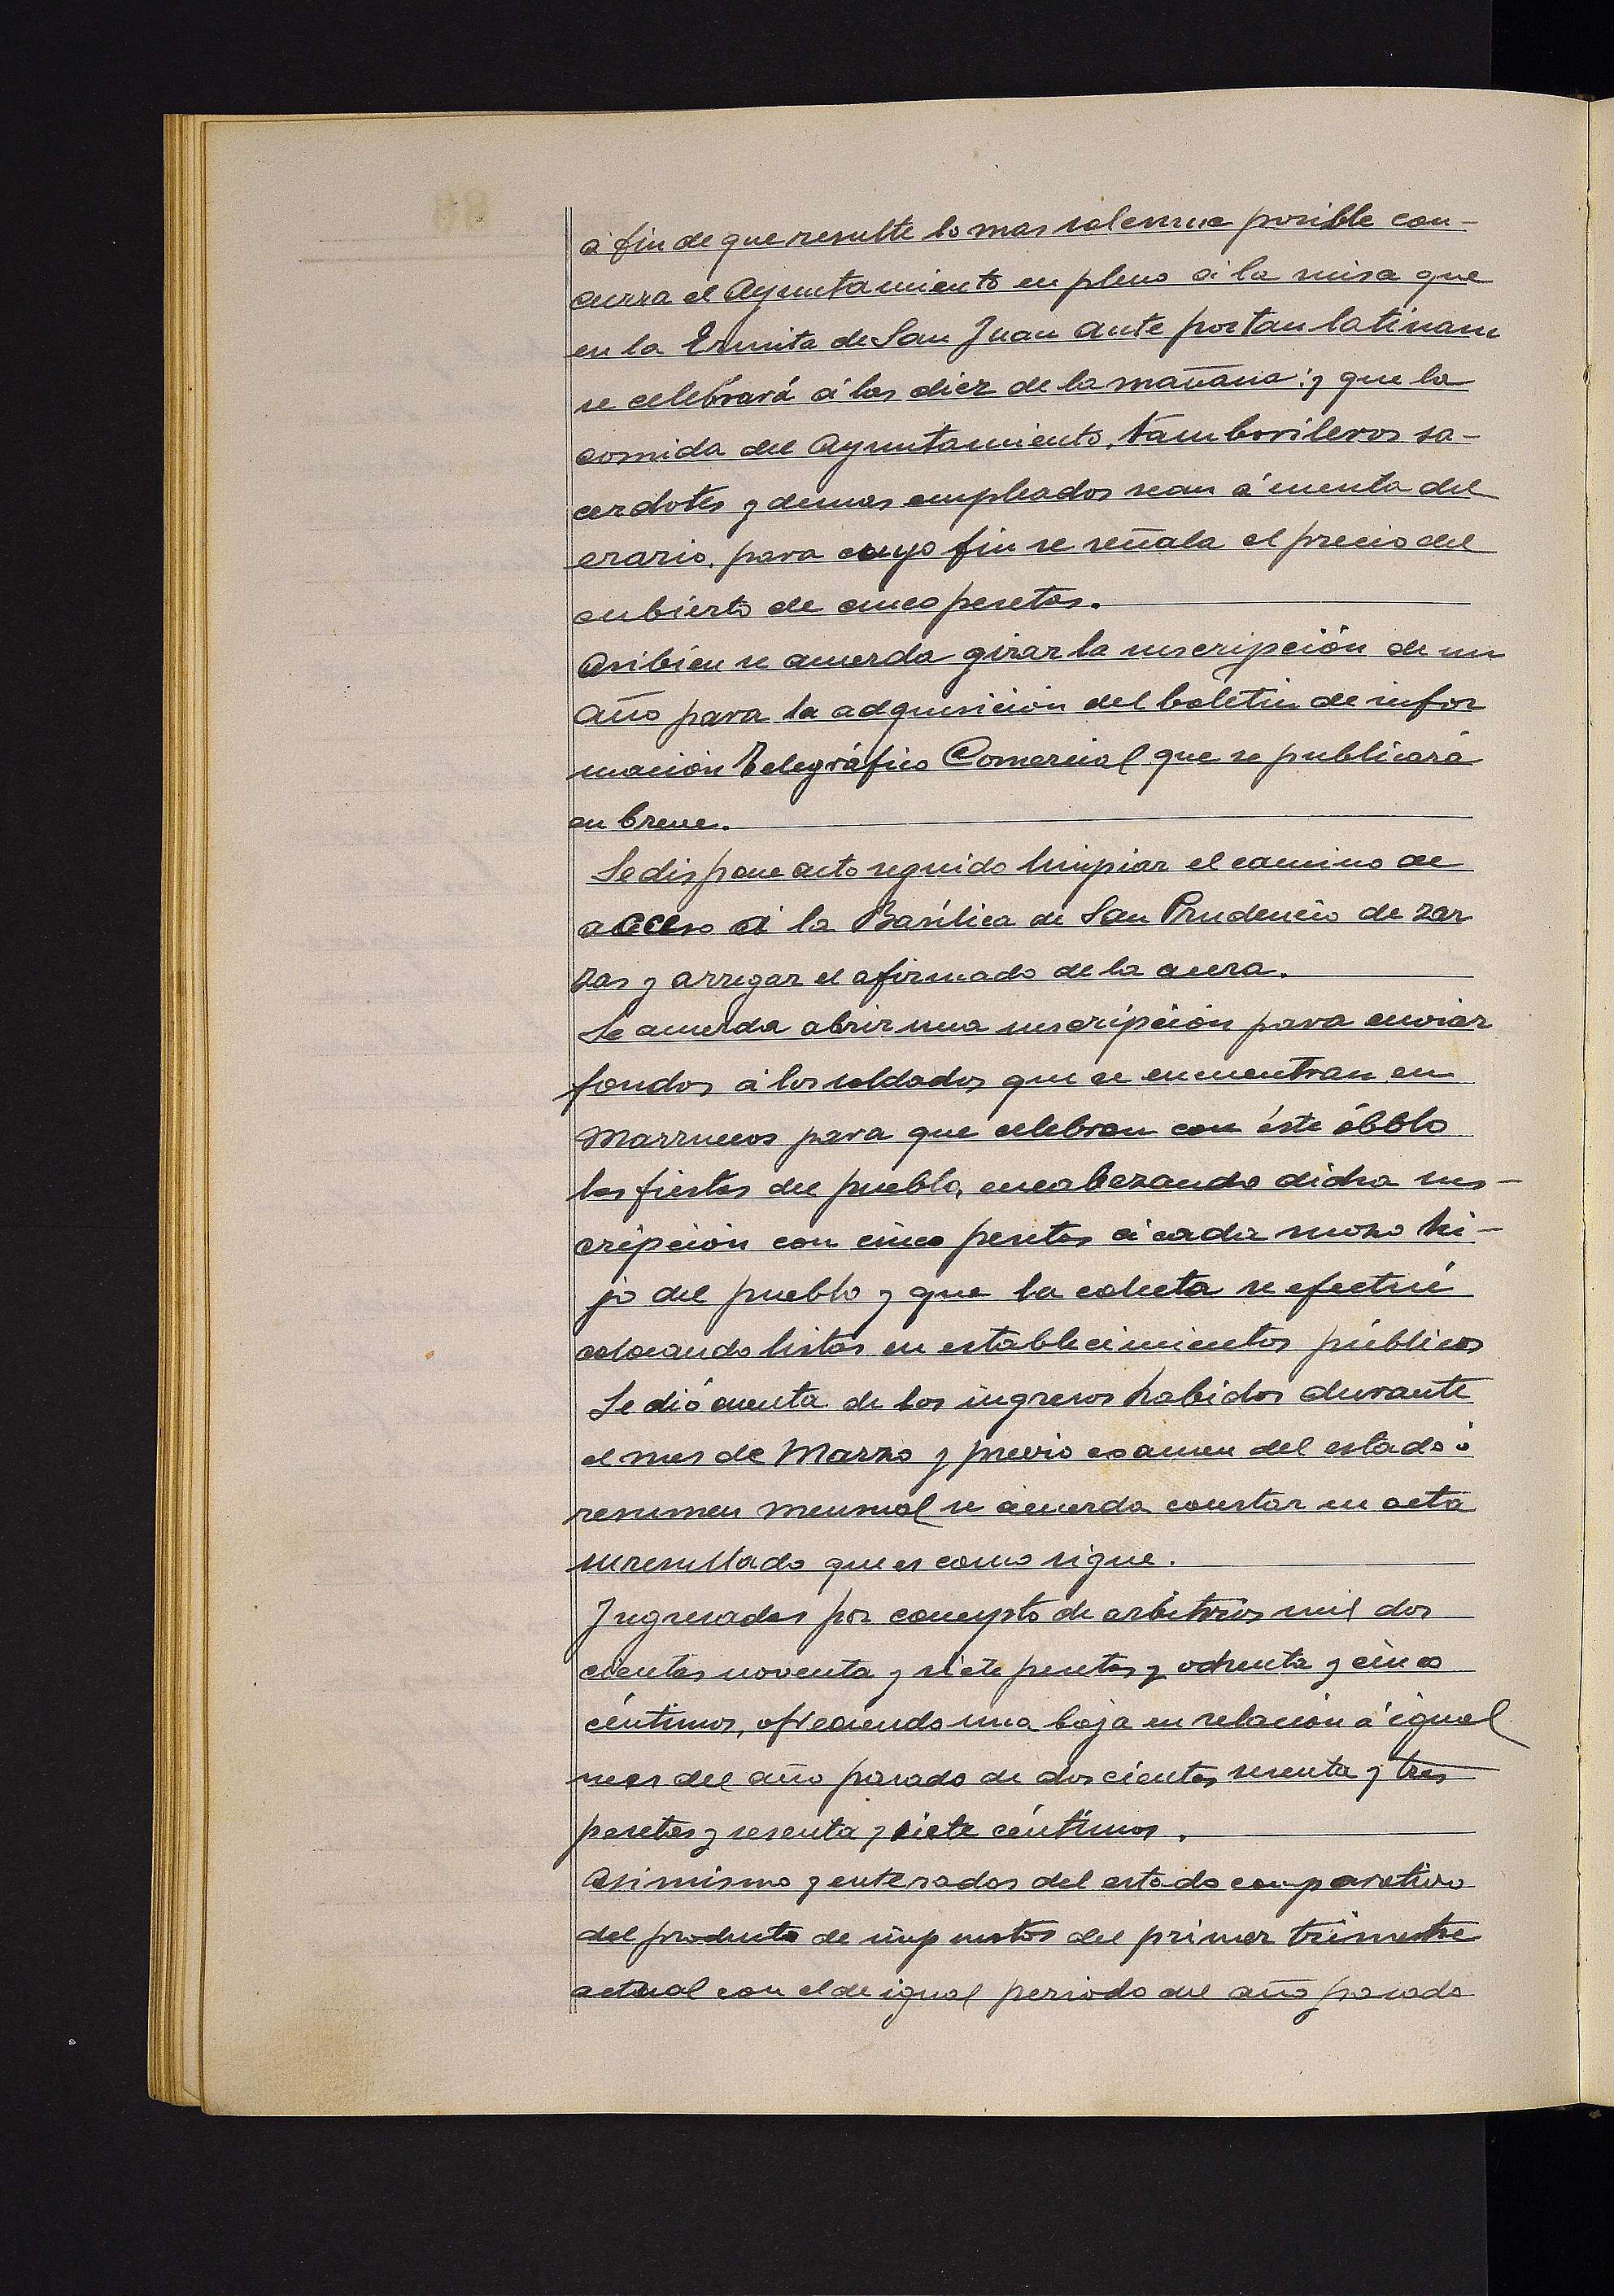 á fin de que resulte lo mas solemne posible con-
curra el Ayuntamiento en pleno á la misa que
en la Ermita de San Juan ante portan latinam
se celebrará á las diez de la mañana: y que la
comida del Ayuntamiento, tamborileros sa-
cerdotes y demas empleados sean á cuenta del
erario, para cuyo fin se señala el precio del
cubierto de cinco pesetas.
Asibien se acuerda girar la suscripción de un
año para la adquisicion del boletin de infor
macion Telegráfico Comercial que se publicará
en breve.
Se dispone acto seguido limpiar el camino de
acceso á la Basílica de San Prudencio de zar
zas y arregar el afirmado de la acera.
Se acuerda abrir una suscripción para enviar
fondos á los soldados que se encuentran en
Marruecos para que celebren con éste óbolo
las fiestas del pueblo, encabezando dicha sus-
cripción con cinco pesetas á cada mozo hi-
jo del pueblo y que la colecta se efectué
colocando listas en establecimientos públicos
Se dió cuenta de los ingresos habidos durante
el mes de Marzo y previo examen del estado ó
resumen mensual se acuerda constar en acta
su resultado que es como sigue.
Ingresadas por concepto de arbitrios mil dos
cientas noventa y siete pesetas y ochenta y cinco
céntimos, ofreciendo una baja en relación á igual
mes del año pasado de doscientas sesenta y tres
pesetas y sesenta y siete céntimos.
Asimismo y enterados del estado comparativo
del producto de impuestos del primer trimestre
actual con el de igual periodo del año pasado